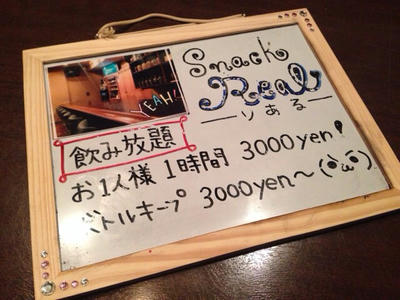 Snack
Real
ーりあるー
YEAH!
飲み放題
お1人様 1時間 3000yen!
ボトルキープ 3000yen〜(・ω・)